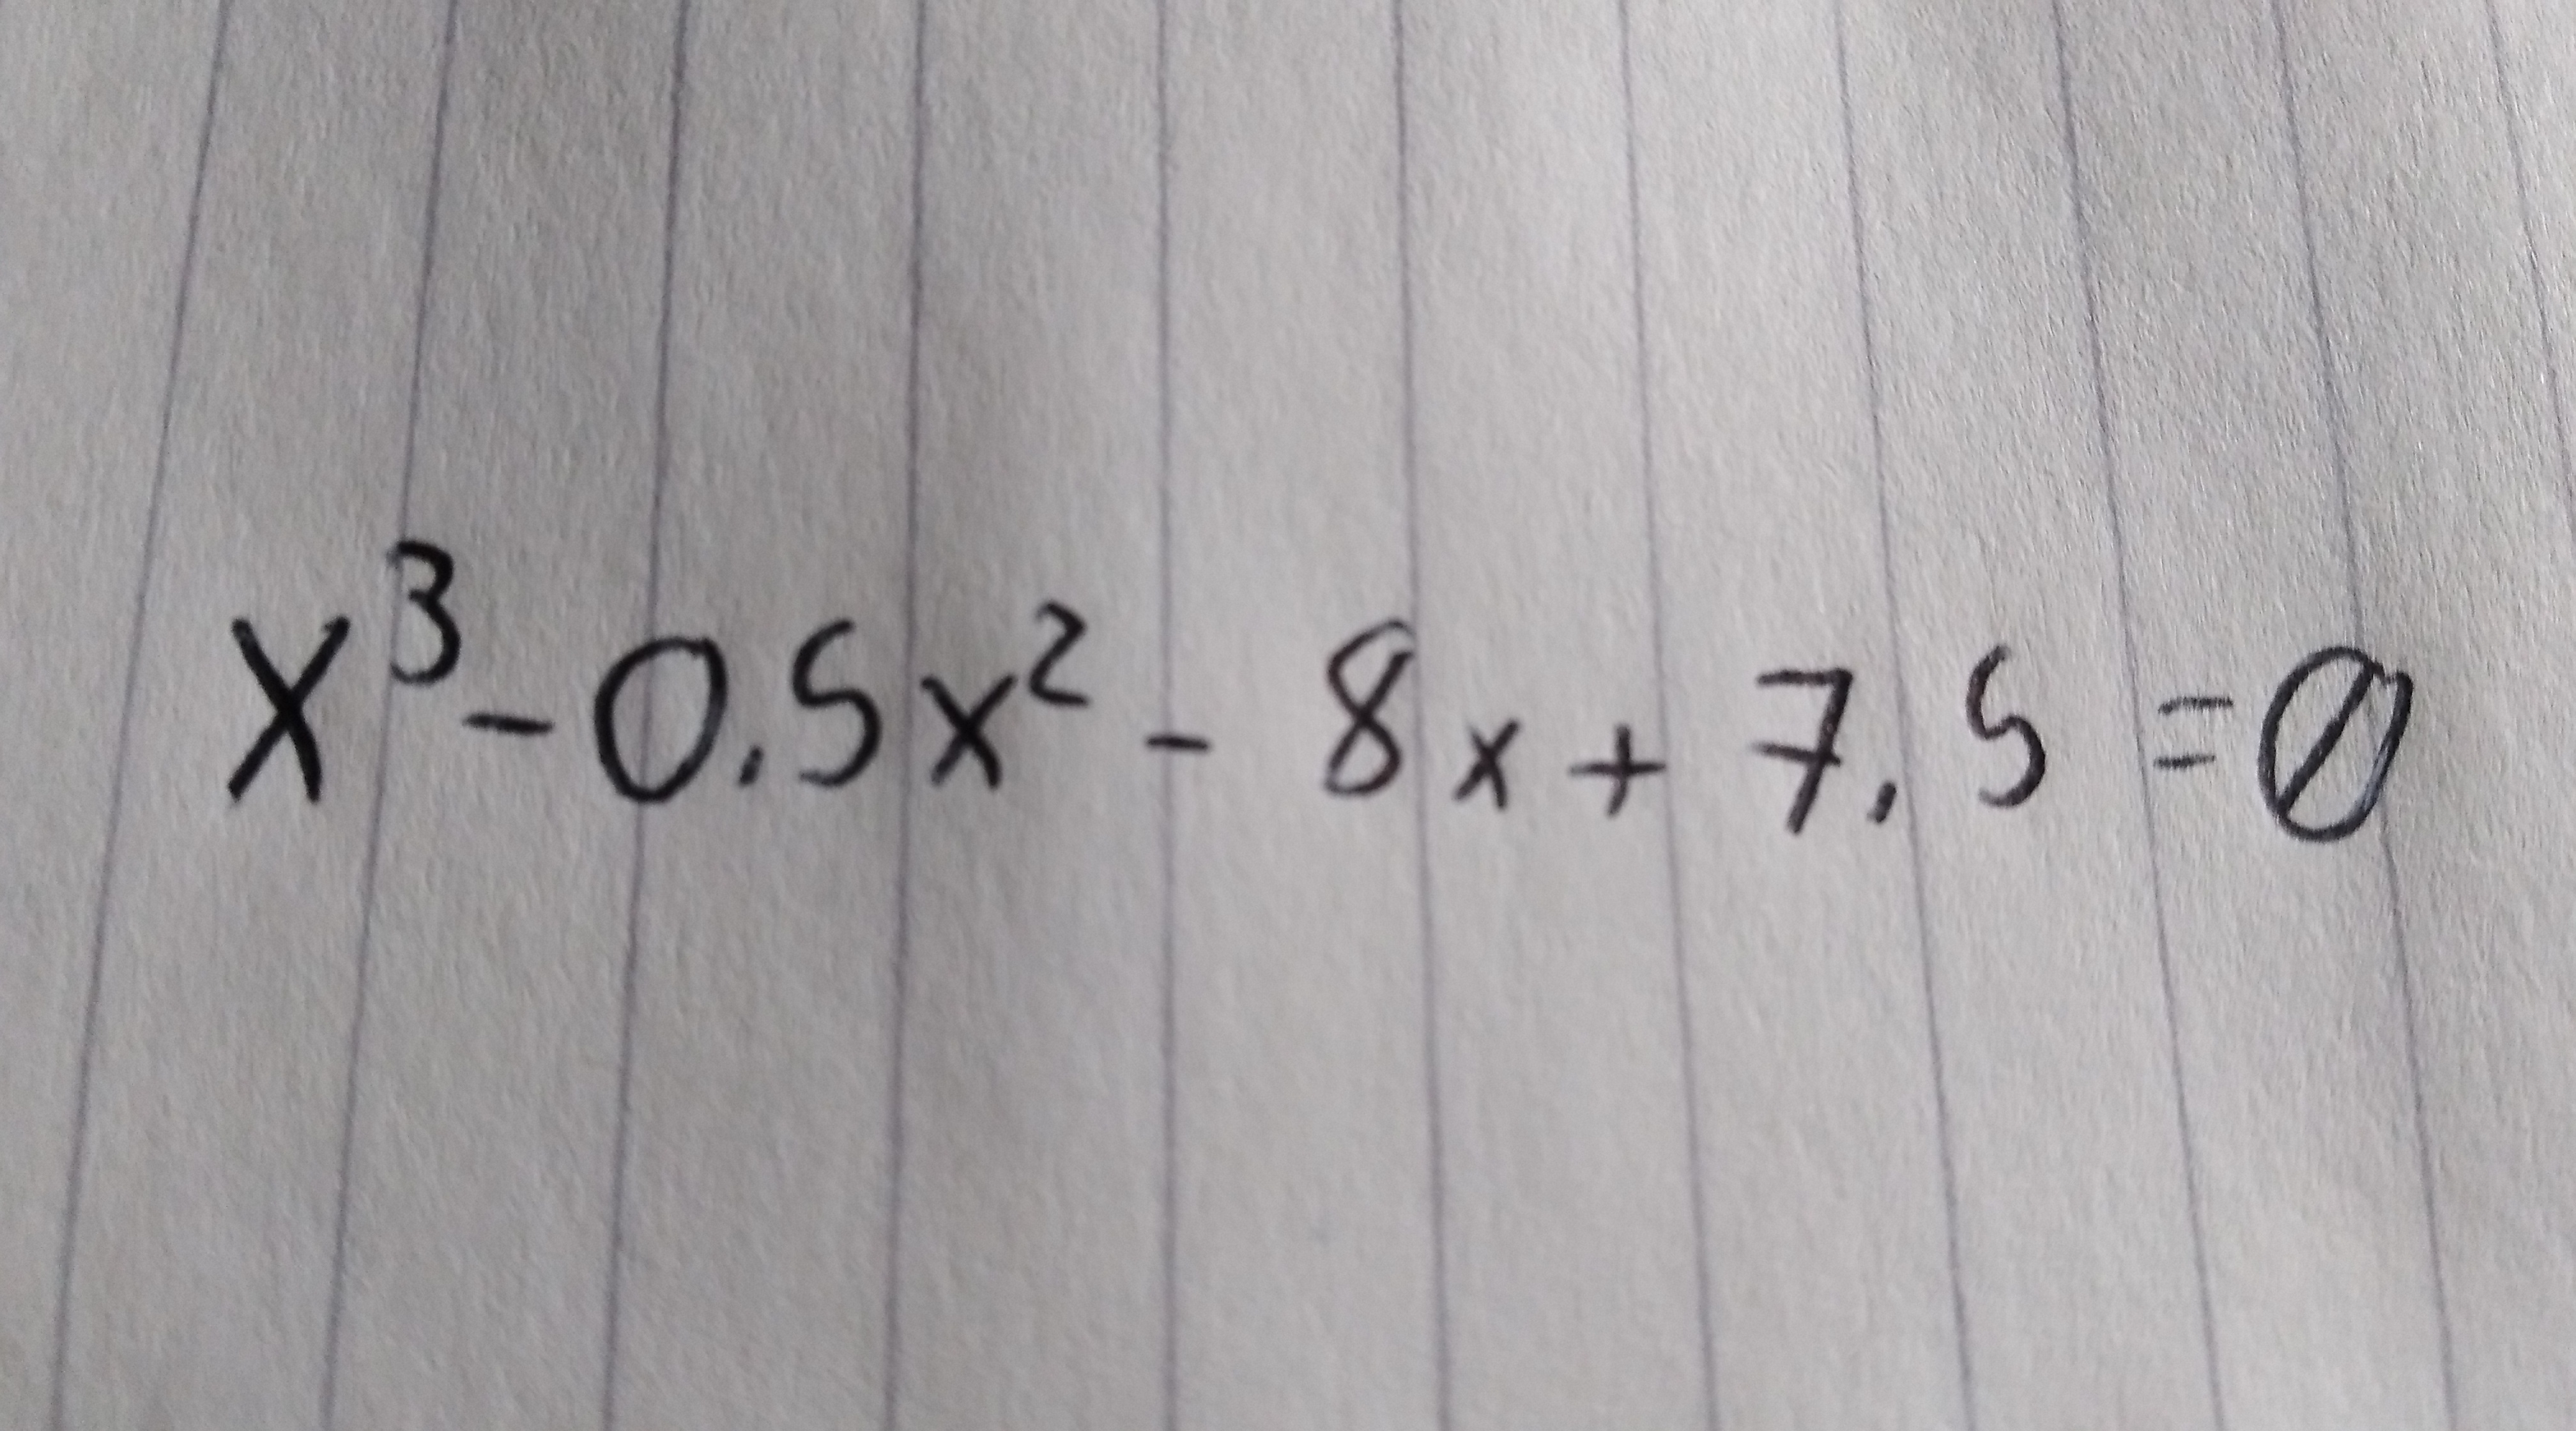 x³-0.5x² - 8x + 7.5 = 0